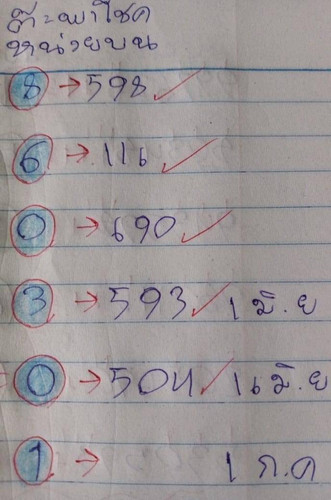 ต๊ะพาโชค
หน่วยบน
8 → 598 ✓
6 → 116 ✓
0 → 690 ✓
3 → 593 ✓ 1 มิ.ย
0 → 504 ✓ 16 มิ.ย
1 → 1 ก.ค